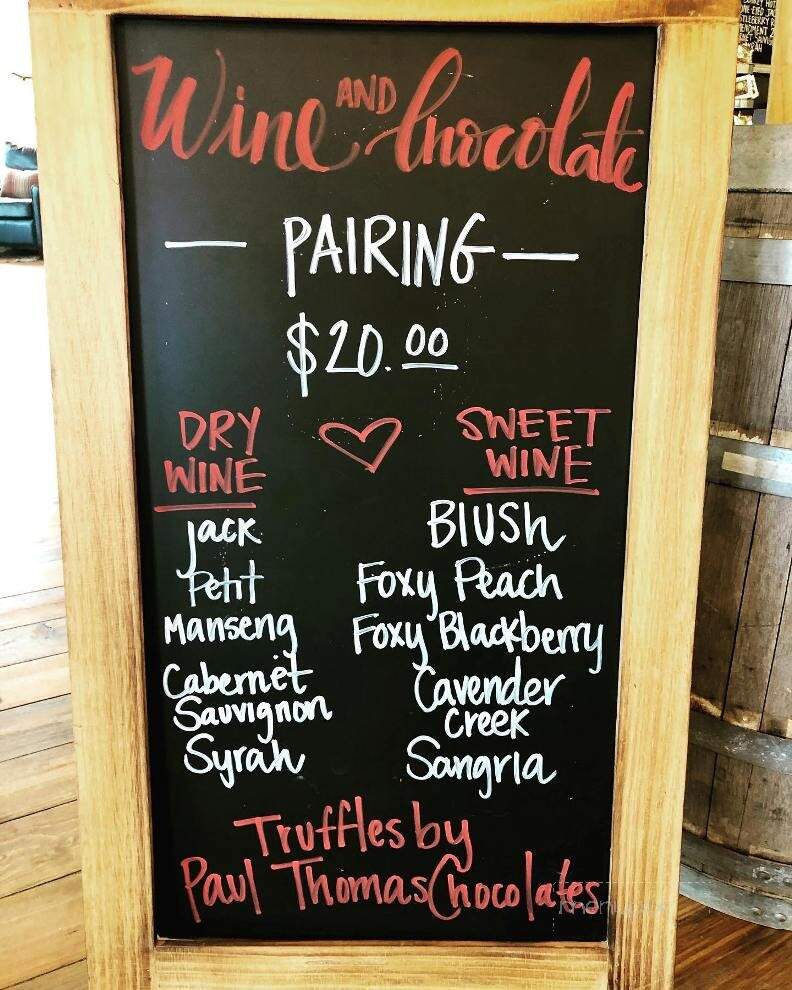 Wine AND Chocolate
— PAIRING —
$20.00
DRY WINE
Jack
Petit
Manseng
Cabernet
Sauvignon
Syrah
SWEET WINE
Blush
Foxy Peach
Foxy Blackberry
Cavender
Creek
Sangria
Truffles by
Paul Thomas Chocolates